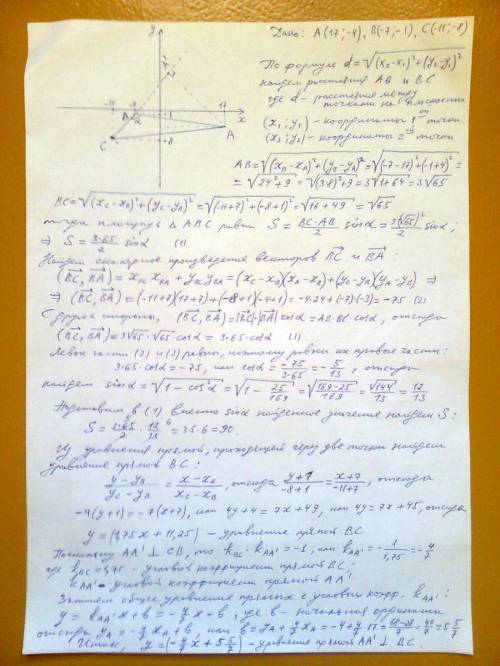 Дано: A(17;-4), B(-7;-1), C(-11;-8)
y
-11
-7
17
x
B
-1
A
C
-8
По формуле d=√((x₂-x₁)²+(y₂-y₁)²)
найдем расстояния AB и BC
где d- расстояние между
точками на плоскости
(x₁;y₁)-координаты 1ой точки
(x₂;y₂)-координаты 2ой точки
AB=√((x_B-x_A)²+(y_B-y_A)²)=√((-7-17)²+(-1+4)²)=
=√(24²+9)=√((3·8)²+9)=3√(1+64)=3√65
BC=√((x_C-x_B)²+(y_C-y_B)²)=√((-11+7)²+(-8+1)²)=√(16+49)=√65
тогда площадь ΔABC равна S=BC·AB/2 sinα=3(√65)²/2 sinα;
⇒ S=3·65/2 sinα (1)
Найдем скалярное произведение векторов BC и BA:
(BC,BA)=x_BC x_BA+y_BC y_BA=(x_C-x_B)(x_A-x_B)+(y_C-y_B)(y_A-y_B) ⇒
⇒ (BC,BA)=(-11+7)(17+7)+(-8+1)(-4+1)=-4·24+(-7)·(-3)=-75 (2)
С другой стороны, (BC,BA)=|BC|·|BA|cosα=AB·BC cosα, отсюда
(BC,BA)=3√65·√65·cosα=3·65·cosα (3)
Левые части (2) и (3) равны, поэтому равны их правые части:
3·65·cosα=-75, или cosα=-75/3·65=-5/13, отсюда
найдем sinα=√(1-cos²α)=√(1-25/169)=√((169-25)/169)=√144/13=12/13
Подставим в (1) вместо sinα найденное значение найдем S:
S=3·65/2·12/13=3·5·6=90.
Из уравнения прямой, проходящей через две точки найдем
уравнение прямой BC:
(y-y_B)/(y_C-y_B)=(x-x_B)/(x_C-x_B), отсюда (y+1)/(-8+1)=(x+7)/(-11+7), отсюда
-4(y+1)=-7(x+7), или 4y+4=7x+49, или 4y=7x+45, отсюда
y=(1,75x+11,25)-уравнение прямой BC
Поскольку AA'⊥CB, то k_BC·k_AA'=-1, или k_AA'=-1/1,75=-4/7
где k_BC=1,75-угловой коэффициент прямой BC;
k_AA'-угловой коэффициент прямой AA'
Запишем общее уравнение прямых с угловым коэфф. k_AA':
y=k_AA'x+b=-4/7x+b, где b- начальная ордината
отсюда y_A=-4/7x_A+b, или b=y_A+4/7x_A=-4+4/7·17=(68-28)/7=40/7=5 5/7
Итак, y=(-4/7x+5 5/7)-уравнение прямой AA'⊥BC.